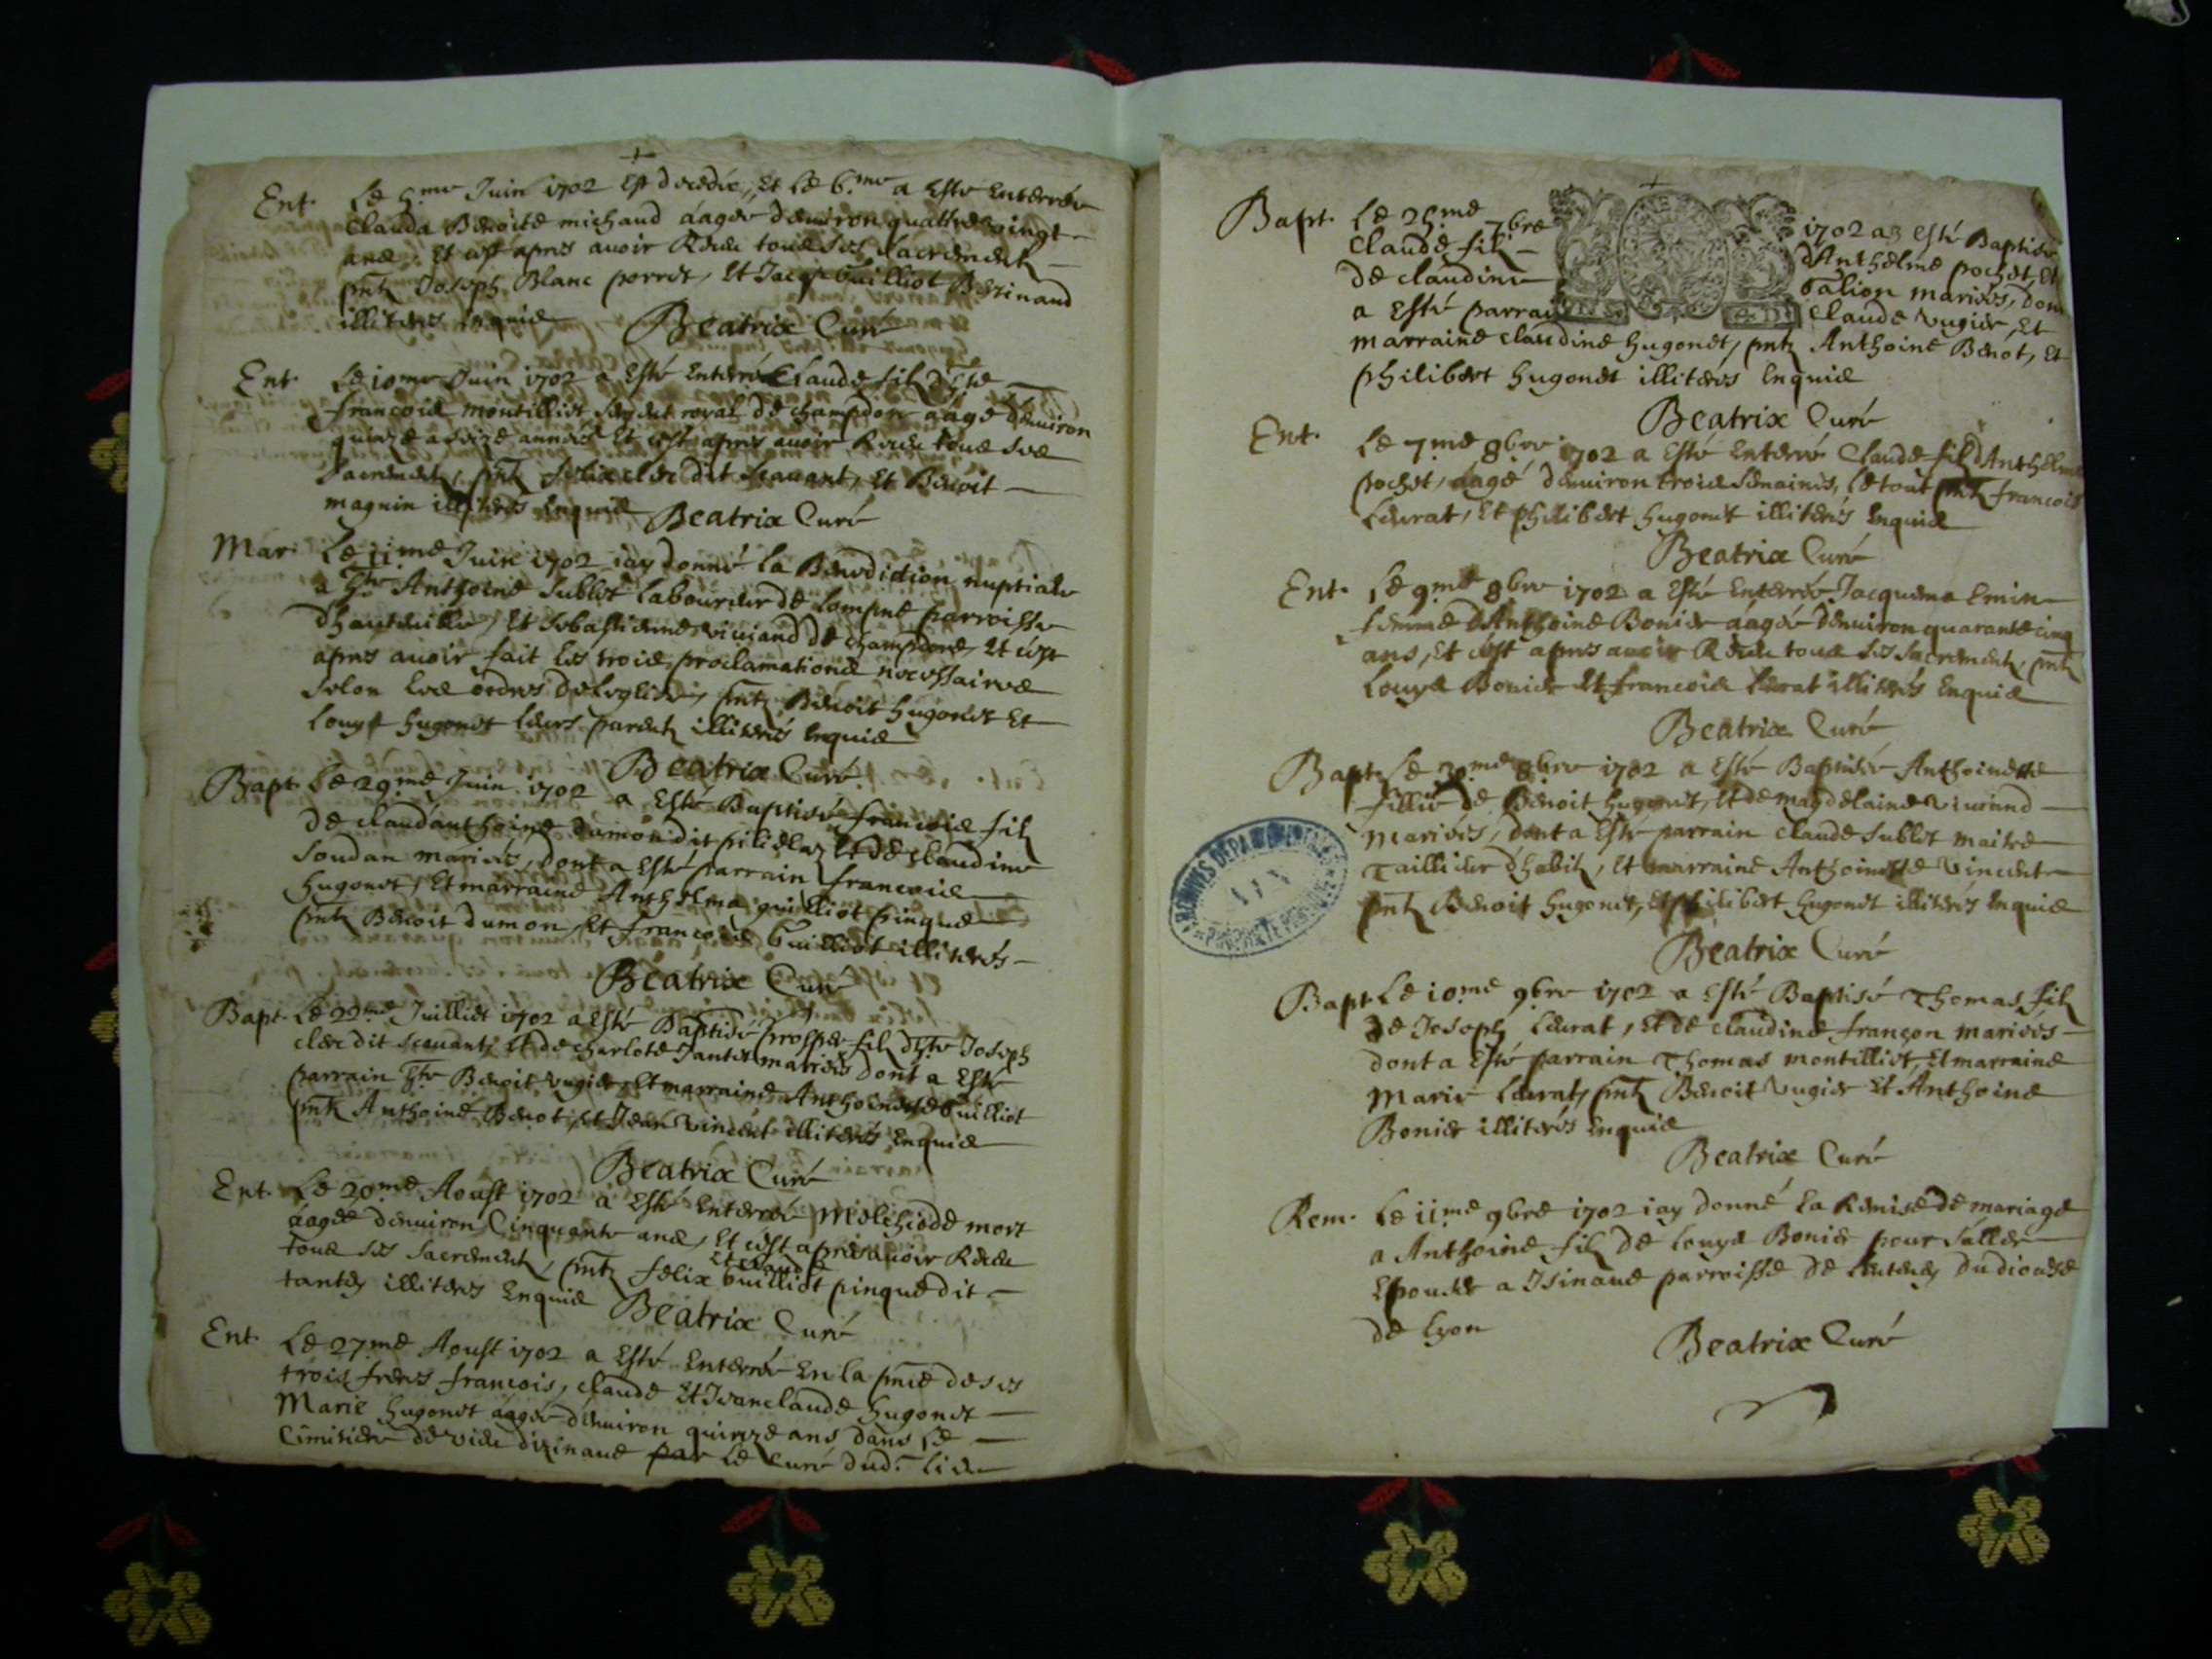 Ent. Le 5.me Juin 1702 Est decedée, Et Le 6.me a Esté Enterrée
Clauda Benoite michaud áagée denviron quattrevingt
ans, Et c'est apres avoir Receu tous ses sacrements
pnts Joseph Blanc perret, Et Jacq. Guilliot
illiteres Enquis Beatrix Curé
Ent Le 10me Juin 1702 a Esté Enterré Claude fils d'hte
francois montilliet sergent royal de champdor aagé denviron
quinze a seize années Et c'est apres avoir Receu tous ses
sacrements, pnts felix clerc dit scavant, Et Benoit
magnin illiterés Enquis Beatrix Curé
Mar. Le 11.me Juin 1702 iay donné la Benediction nuptiale
a hte Anthoine Sublet Laboureur de Lompne parroisse
Dhauteville, Et Sebastienne viviand de champdore, Et c'est
apres avoir fait les trois proclamations necessaires
selon les ordres de Leglise, pnts Benoit hugonet Et
Louys hugonet leurs parents illiterés Enquis
Beatrix Curé
Bapt. Le 29.me Juin 1702 a Esté Baptisé francois fils
de claudanthoine Dumon dit Et de claudine
Soudan mariés, dont a Esté parrain francois
hugonet, Et marraine Anthelma guilliot pinque
pnts Benoit dumon, Et francois Guilliot illiterés
Beatrix Curé
Bapt. Le 22me Juilliet 1702 a Esté Baptisé prosper fils d'hte Joseph
clerc dit scavant, Et de charlote Jantet mariés dont a Esté
parrain hte Benoit vugier, Et marraine Anthoinette Guilliot
pnts Anthoine Benot, Et Jean vincent illiterés Enquis
Beatrix Curé
Ent. Le 20.me Aoust 1702 a Esté Enterrée mort
áagée denviron Cinquante ans, Et c'est apres avoir Receu
Et claude
tous ses sacrements, pnts felix Guilliot pinque dit
tantes illiteres Enquis Beatrix Curé
Ent. Le 27.me Aoust 1702 a Esté Enterrée En la pnce de ses
trois freres francois, claude Et Jeanclaude hugonet
Marie hugonet áagée denviron quinze ans dans Le
Cimitiere de vieu dizinave par Le Curé dud. lieu
Bapt. Le 25.me 7bre 1702 a Esté Baptisé
Claude fils d'Anthelme pochet, Et
de claudine Galion mariés, dont
a Esté parrain Claude vugier, Et
marraine claudine hugonet, pnts Anthoine Benot, Et
philibert hugonet illiteres Enquis
Beatrix Curé
Ent. Le 7.me 8bre 1702 a Esté Enterré Claude fils d'Anthelme
pochet, aagé denviron trois semaines, Le tout pnts francois
Leurat, Et philibert hugonet illiterés Enquis
Beatrix Curé
Ent. Le 9.me 8bre 1702 a Esté Enterrée Jacquema Emin
femme d'Anthoine Bonier áagée denviron quarante cinq
ans, Et c'est apres avoir Receu tous ses sacrements, pnts
Louys Bonier Et francois Leurat illiterés Enquis
Beatrix Curé
Bapt. Le 30.me 8bre 1702 a Esté Baptisée Anthoinette
fillie de Benoit hugonet, Et de magdelaine viviand
mariés, dont a Esté parrain claude Sublet maitre
Taillieur d'habits, Et marraine Anthoinette Vincent
pnts Benoit hugonet, Et philibert hugonet illiterés Enquis
Beatrix Curé
Bapt Le 10.me 9bre 1702 a Esté Baptisé Thomas fils
de Joseph Leurat, Et de claudine françon mariés
dont a Esté parrain Thomas montilliet, Et marraine
Marie Leurat, pnts Benoit vugier Et Anthoine
Bonier illiterés Enquis
Beatrix Curé
Rem. Le 11.me 9bre 1702 iay donné la Remise de mariage
a Anthoine fils de Louys Bonier pour s'aller
Epouser a Isinave parroisse de du diocese
de Lyon
Beatrix Curé
ARCHIVES DEPARTEMENTALES
AIN